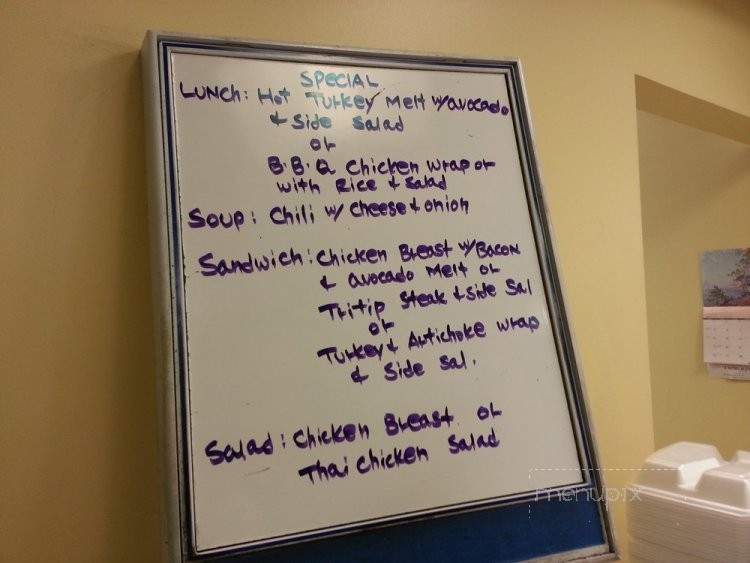 SPECIAL
LUNCH: Hot Turkey Melt w/avocado
& Side Salad
or
B.B.Q Chicken wrap or
with Rice & Salad
Soup: Chili w/ Cheese & onion
Sandwich: Chicken Breast w/Bacon
& avocado Melt or
Tritip Steak & Side Sal
or
Turkey & Artichoke wrap
& Side Sal.
Salad: Chicken Breast or
Thai Chicken Salad
menupix